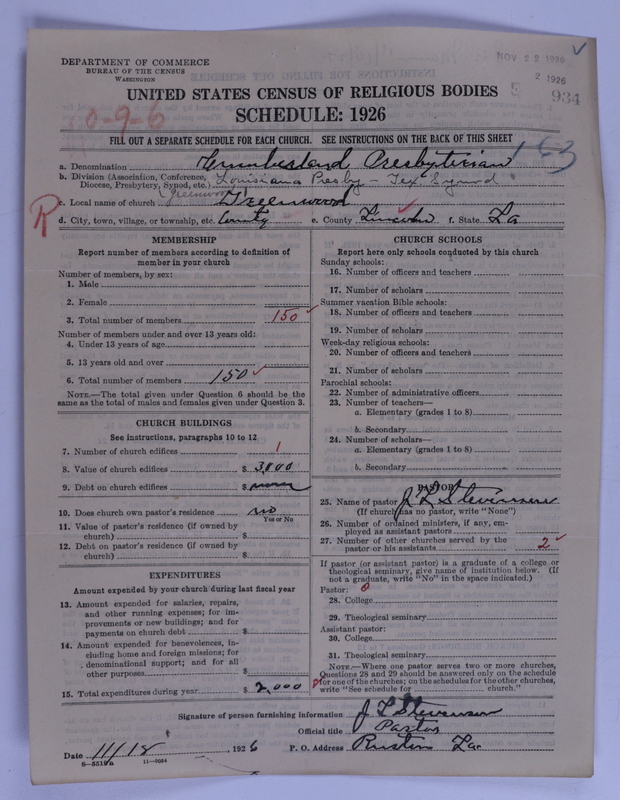 DEPARTMENT OF COMMERCE
BUREAU OF THE CENSUS
WASHINGTON
NOV 22 1926
2 1926
934
UNITED STATES CENSUS OF RELIGIOUS BODIES
SCHEDULE: 1926
0-9-6
FILL OUT A SEPARATE SCHEDULE FOR EACH CHURCH. SEE INSTRUCTIONS ON THE BACK OF THIS SHEET
a. Denomination Cumberland Presbyterian 163
b. Division (Association, Conference, Diocese, Presbytery, Synod, etc.) Louisiana Presby - Tex. Synod
(Greenwood)
c. Local name of church Greenwood
R
d. City, town, village, or township, etc. County e. County Lincoln f. State La
MEMBERSHIP
Report number of members according to definition of
member in your church
Number of members, by sex:
1. Male
2. Female
3. Total number of members 150
Number of members under and over 13 years old:
4. Under 13 years of age
5. 13 years old and over
6. Total number of members 150
NOTE.—The total given under Question 6 should be the
same as the total of males and females given under Question 3.
CHURCH BUILDINGS
See instructions, paragraphs 10 to 12
7. Number of church edifices 1
8. Value of church edifices $ 3,000
9. Debt on church edifices $ none
10. Does church own pastor's residence no
Yes or No
11. Value of pastor's residence (if owned by
church) $
12. Debt on pastor's residence (if owned by
church) $
EXPENDITURES
Amount expended by your church during last fiscal year
13. Amount expended for salaries, repairs,
and other running expenses; for im-
provements or new buildings; and for
payments on church debt $
14. Amount expended for benevolences, in-
cluding home and foreign missions; for
denominational support; and for all
other purposes $
15. Total expenditures during year $ 2,000
CHURCH SCHOOLS
Report here only schools conducted by this church
Sunday schools:
16. Number of officers and teachers
17. Number of scholars
Summer vacation Bible schools:
18. Number of officers and teachers
19. Number of scholars
Week-day religious schools:
20. Number of officers and teachers
21. Number of scholars
Parochial schools:
22. Number of administrative officers
23. Number of teachers—
a. Elementary (grades 1 to 8)
b. Secondary
24. Number of scholars—
a. Elementary (grades 1 to 8)
b. Secondary
PASTOR
25. Name of pastor J L Stevenson
(If church has no pastor, write "None")
26. Number of ordained ministers, if any, em-
ployed as assistant pastors
27. Number of other churches served by the
pastor or his assistants 2
If pastor (or assistant pastor) is a graduate of a college or
theological seminary, give name of institution below. (If
not a graduate, write "No" in the space indicated.)
Pastor: 0
28. College
29. Theological seminary
Assistant pastor:
30. College
31. Theological seminary
NOTE.—Where one pastor serves two or more churches,
Questions 28 and 29 should be answered only on the schedule
for one of the churches; on the schedules for the other churches,
write "See schedule for church."
Signature of person furnishing information J L Stevenson
Official title Pastor
Date 11/18, 1926 P. O. Address Ruston La
11—9034